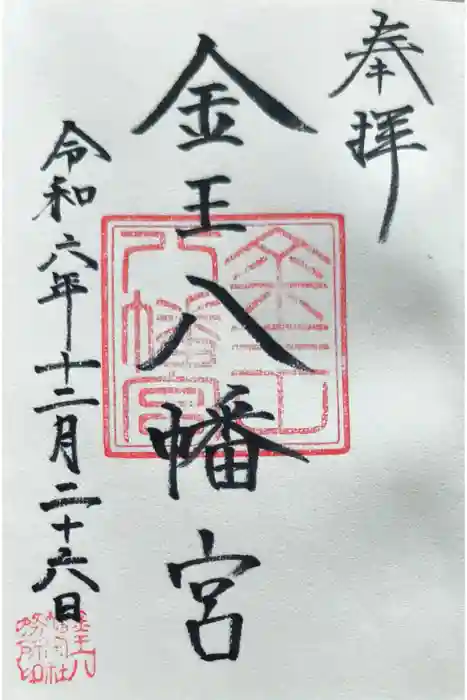 奉拝
金王八幡宮
令和六年十二月二十六日
金王八幡宮
金王八
幡神社
務所印